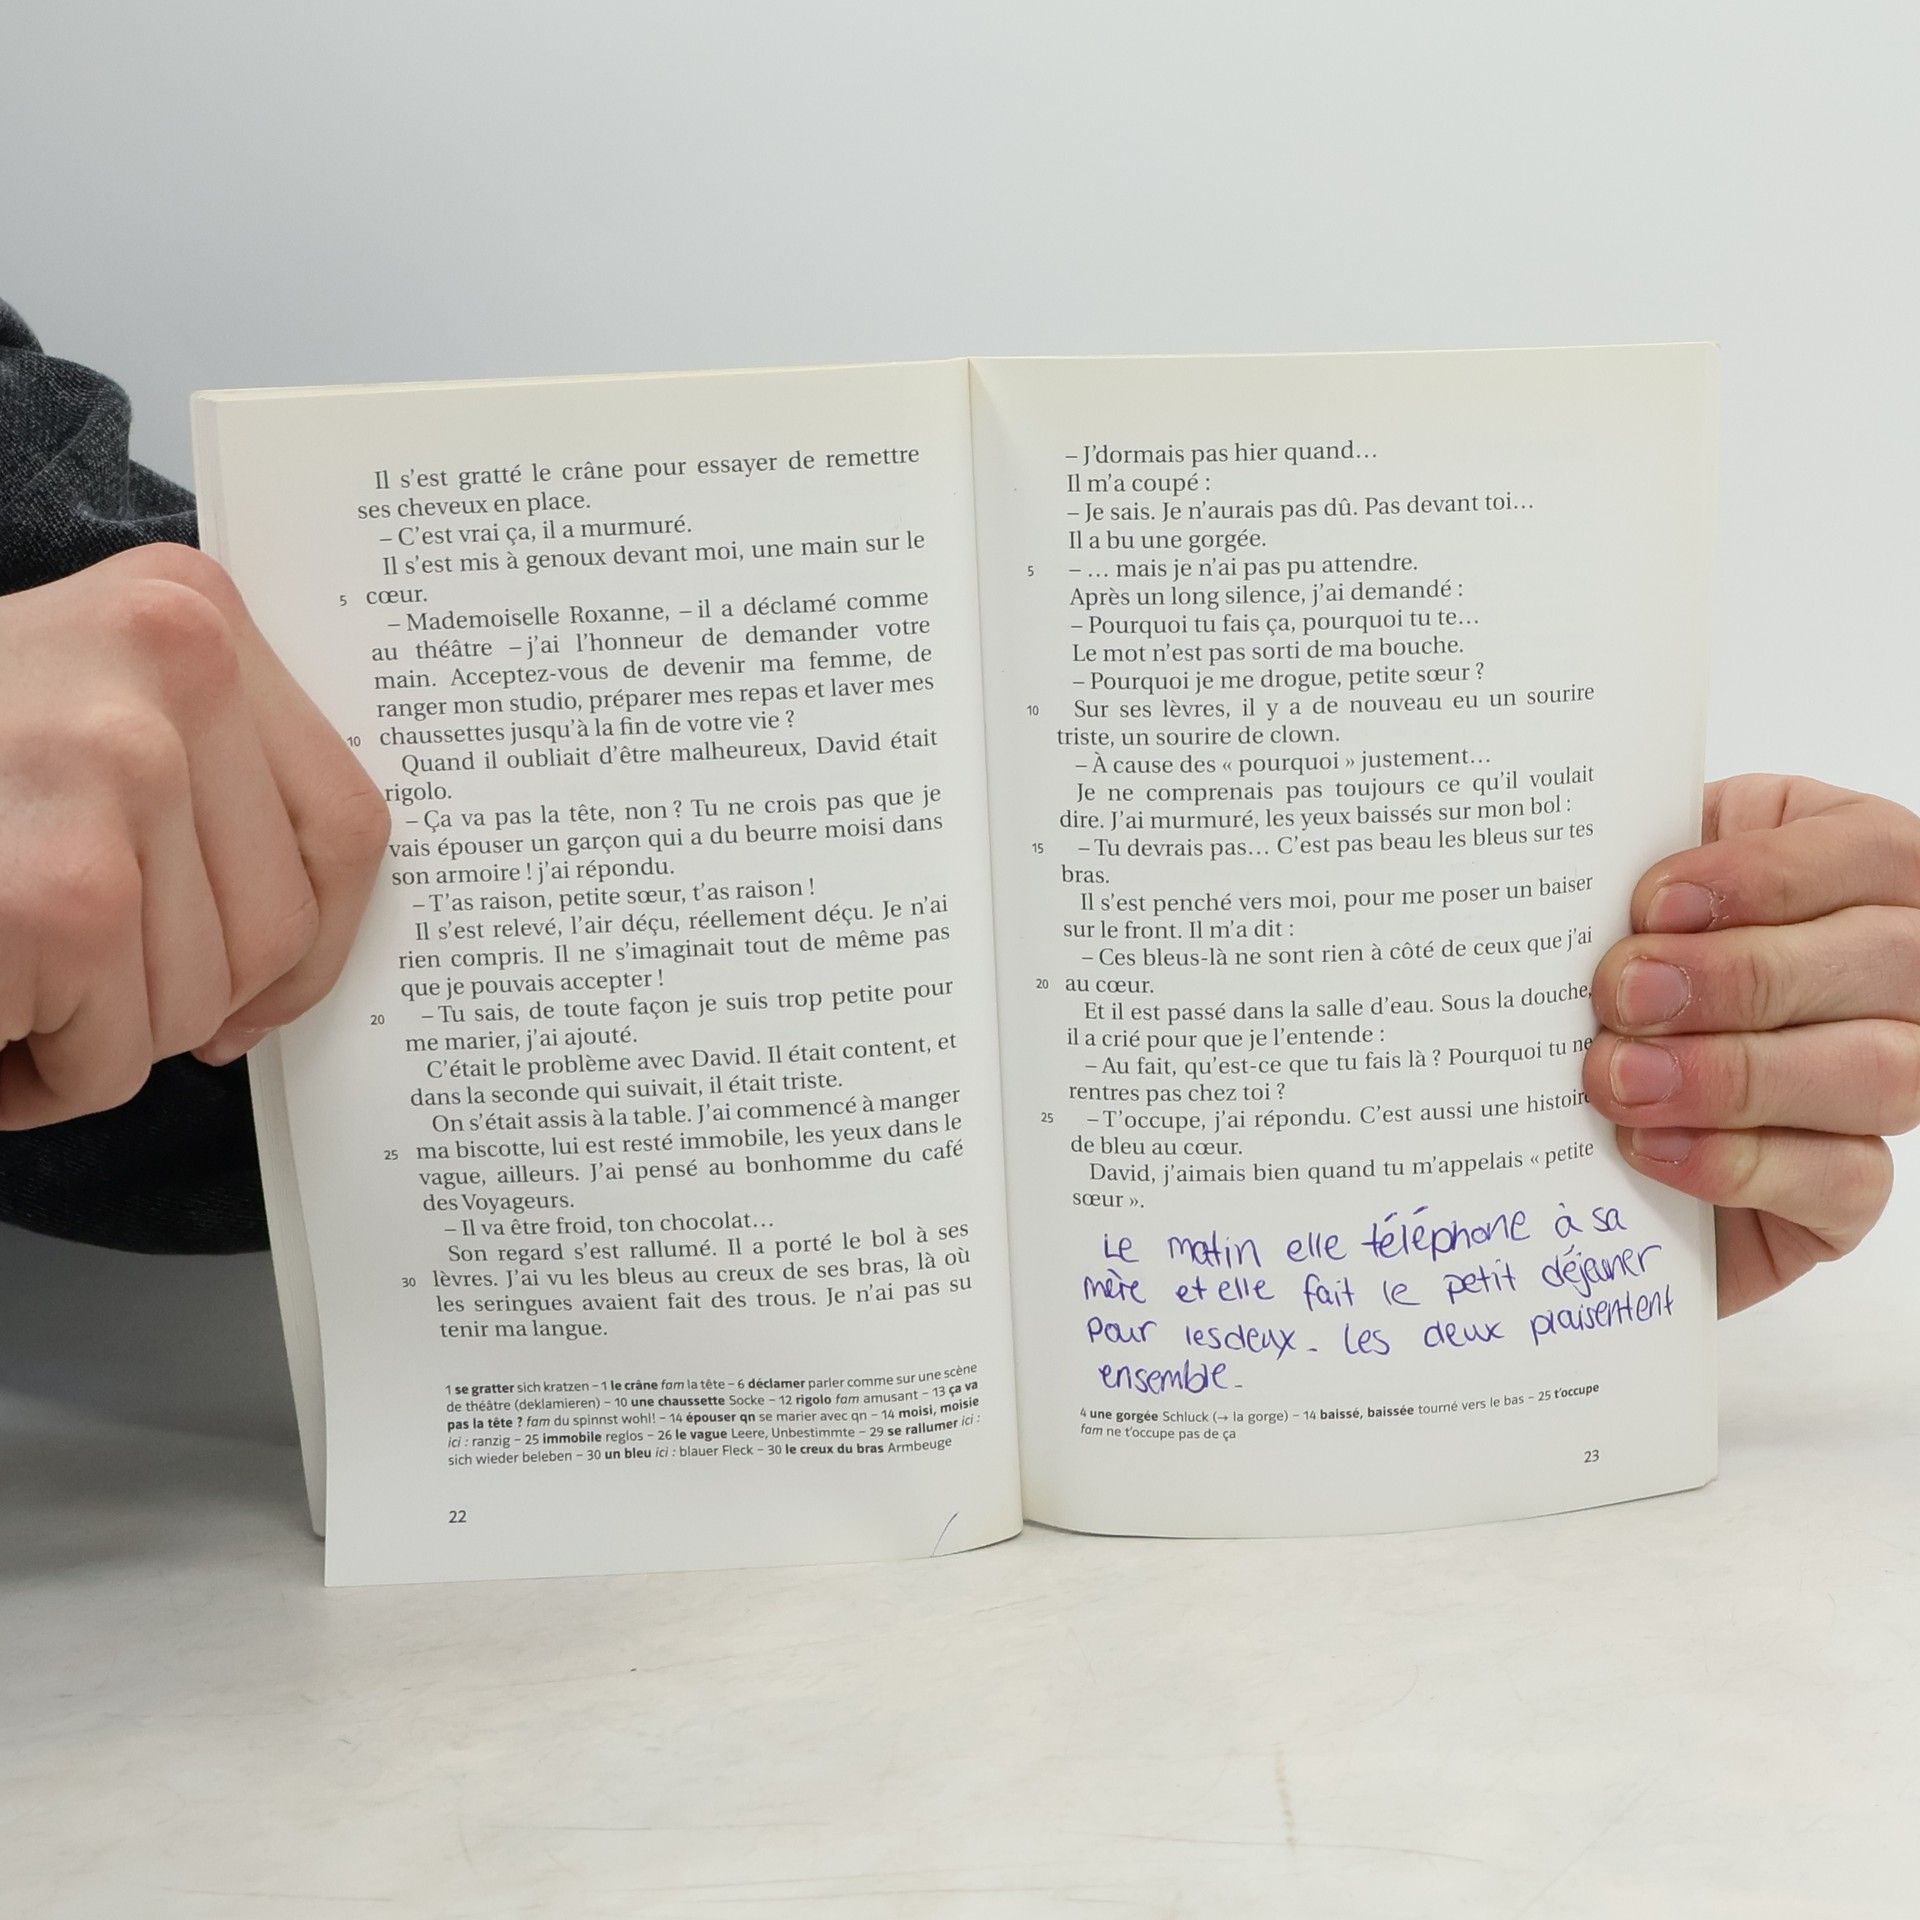 Il s'est gratté le crâne pour essayer de remettre
ses cheveux en place.
– C'est vrai ça, il a murmuré.
Il s'est mis à genoux devant moi, une main sur le
5 cœur.
– Mademoiselle Roxanne, – il a déclamé comme
au théâtre – j'ai l'honneur de demander votre
main. Acceptez-vous de devenir ma femme, de
ranger mon studio, préparer mes repas et laver mes
10 chaussettes jusqu'à la fin de votre vie ?
Quand il oubliait d'être malheureux, David était
rigolo.
– Ça va pas la tête, non ? Tu ne crois pas que je
vais épouser un garçon qui a du beurre moisi dans
son armoire ! j'ai répondu.
– T'as raison, petite sœur, t'as raison !
Il s'est relevé, l'air déçu, réellement déçu. Je n'ai
rien compris. Il ne s'imaginait tout de même pas
que je pouvais accepter !
20 – Tu sais, de toute façon je suis trop petite pour
me marier, j'ai ajouté.
C'était le problème avec David. Il était content, et
dans la seconde qui suivait, il était triste.
On s'était assis à la table. J'ai commencé à manger
25 ma biscotte, lui est resté immobile, les yeux dans le
vague, ailleurs. J'ai pensé au bonhomme du café
des Voyageurs.
– Il va être froid, ton chocolat…
Son regard s'est rallumé. Il a porté le bol à ses
30 lèvres. J'ai vu les bleus au creux de ses bras, là où
les seringues avaient fait des trous. Je n'ai pas su
tenir ma langue.
1 se gratter sich kratzen – 1 le crâne fam la tête – 6 déclamer parler comme sur une scène
de théâtre (deklamieren) – 10 une chaussette Socke – 12 rigolo fam amusant – 13 ça va
pas la tête ? fam du spinnst wohl! – 14 épouser qn se marier avec qn – 14 moisi, moisie
ici : ranzig – 25 immobile reglos – 26 le vague Leere, Unbestimmte – 29 se rallumer ici :
sich wieder beleben – 30 un bleu ici : blauer Fleck – 30 le creux du bras Armbeuge
22
– J'dormais pas hier quand…
Il m'a coupé :
– Je sais. Je n'aurais pas dû. Pas devant toi…
Il a bu une gorgée.
5 – … mais je n'ai pas pu attendre.
Après un long silence, j'ai demandé :
– Pourquoi tu fais ça, pourquoi tu te…
Le mot n'est pas sorti de ma bouche.
– Pourquoi je me drogue, petite sœur ?
10 Sur ses lèvres, il y a de nouveau eu un sourire
triste, un sourire de clown.
– À cause des « pourquoi » justement…
Je ne comprenais pas toujours ce qu'il voulait
dire. J'ai murmuré, les yeux baissés sur mon bol :
15 – Tu devrais pas… C'est pas beau les bleus sur tes
bras.
Il s'est penché vers moi, pour me poser un baiser
sur le front. Il m'a dit :
– Ces bleus-là ne sont rien à côté de ceux que j'ai
20 au cœur.
Et il est passé dans la salle d'eau. Sous la douche,
il a crié pour que je l'entende :
– Au fait, qu'est-ce que tu fais là ? Pourquoi tu ne
rentres pas chez toi ?
25 – T'occupe, j'ai répondu. C'est aussi une histoire
de bleu au cœur.
David, j'aimais bien quand tu m'appelais « petite
sœur ».
Le matin elle téléphone à sa
mère et elle fait le petit déjeuner
pour les deux. Les deux plaisentent
ensemble.
4 une gorgée Schluck (→ la gorge) – 14 baissé, baissée tourné vers le bas – 25 t'occupe
fam ne t'occupe pas de ça
23